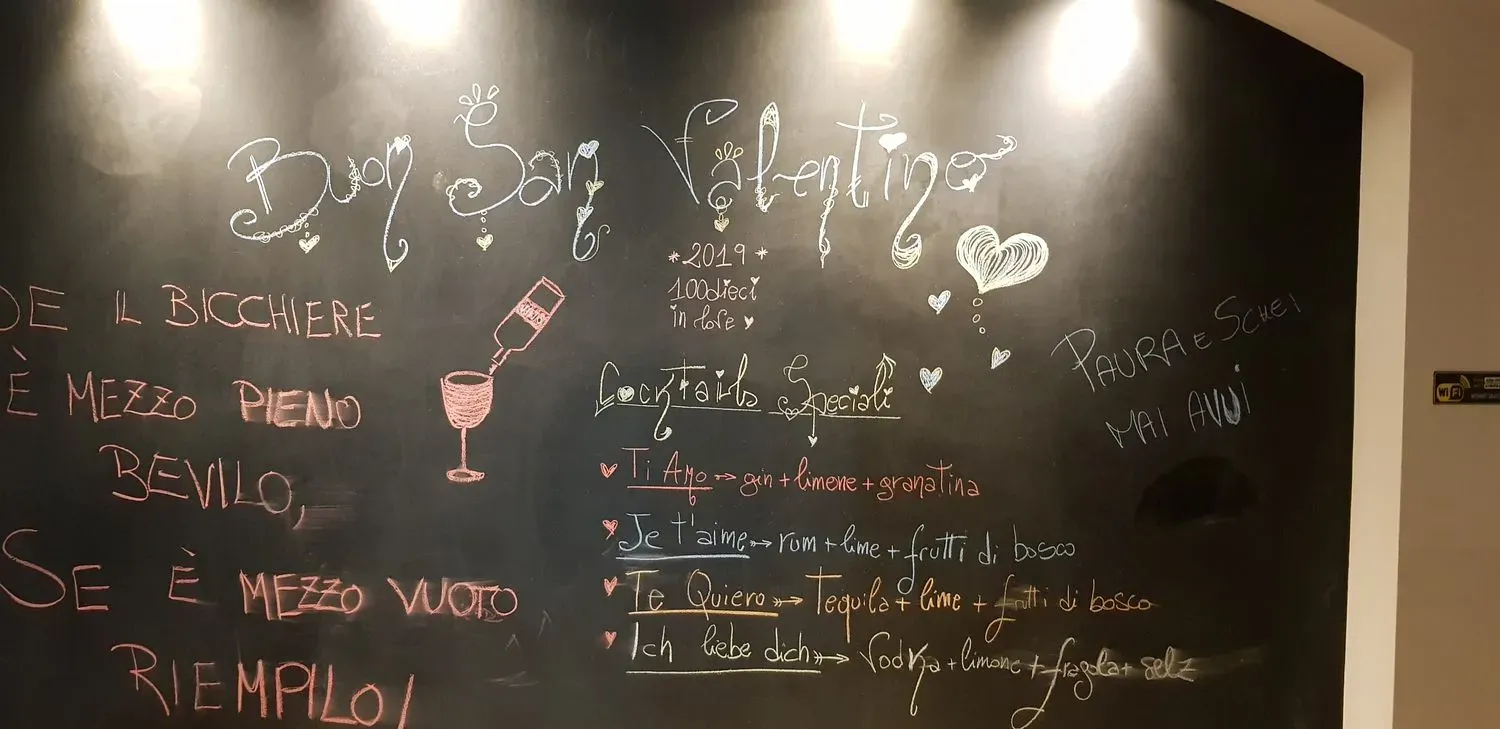 Buon San Valentino
* 2019 *
100dieci
in love
SE IL BICCHIERE
È MEZZO PIENO
BEVILO,
SE È MEZZO VUOTO
RIEMPILO!
Cocktails Speciali
Ti Amo → gin + limone + granatina
Je t'aime → rum + lime + frutti di bosco
Te Quiero → Tequila + lime + frutti di bosco
Ich liebe dich → Vodka + limone + fragola + selz
PAURA E SCHEI
MAI AVUI
WiFi